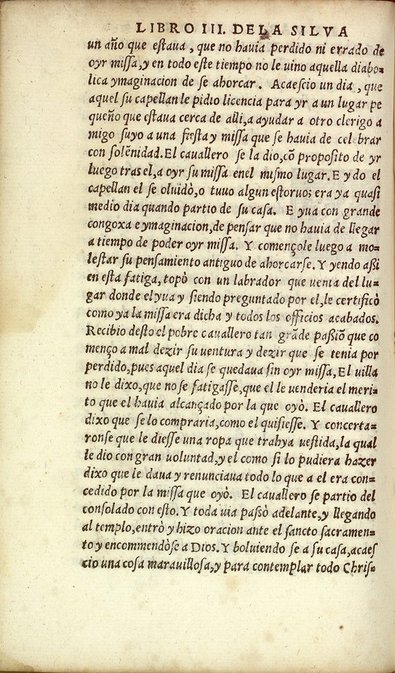 LIBRO III. DE LA SILVA
un año que estaua, que no hauia perdido ni errado de
oyr missa, y en todo este tiempo no le uino aquella diabo-
lica ymaginacion de se ahorcar. Acaescio un dia, que
aquel su capellan le pidio licencia para yr a un lugar pe
queño que estaua cerca de alli, a ayudar a otro clerigo a
migo suyo a una fiesta y missa que se hauia de celebrar
con solẽnidad. El cauallero se la dio, cõ proposito de yr
luego tras el, a oyr su missa enel mismo lugar. E ydo el
capellan el se oluidò, o tuuo algun estoruo; era ya quasi
medio dia quando partio de su casa. E yua con grande
congoxa e ymaginacion, de pensar que no hauia de llegar
a tiempo de poder oyr missa. Y començole luego a mo-
lestar su pensamiento antiguo de ahorcarse. Y yendo assi
en esta fatiga, topò con un labrador que uenia del lu-
gar donde el yua y siendo preguntado por el, le certificò
como ya la missa era dicha y todos los officios acabados.
Recibio desto el pobre cauallero tan grãde passiõ que co
menço a mal dezir su uentura y dezir que se tenia por
perdido, pues aquel dia se quedaua sin oyr missa. El uilla
no le dixo, que no se fatigasse, que el le uenderia el meri-
to que el hauia alcançado por la que oyò. El cauallero
dixo que se lo compraria, como el quisiesse. Y concerta-
ronse que le diesse una ropa que trahya uestida, la qual
le dio con gran uoluntad, y el como si lo pudiera hazer
dixo que le daua y renunciaua todo lo que a el era con-
cedido por la missa que oyò. El cauallero se partio del
consolado con esto. Y toda uia passò adelante, y llegando
al templo, entrò y hizo oracion ante el sancto sacramen-
to y encommendòse a Dios. Y boluiendo se a su casa, acaes
cio una cosa marauillosa, y para contemplar todo Chris-